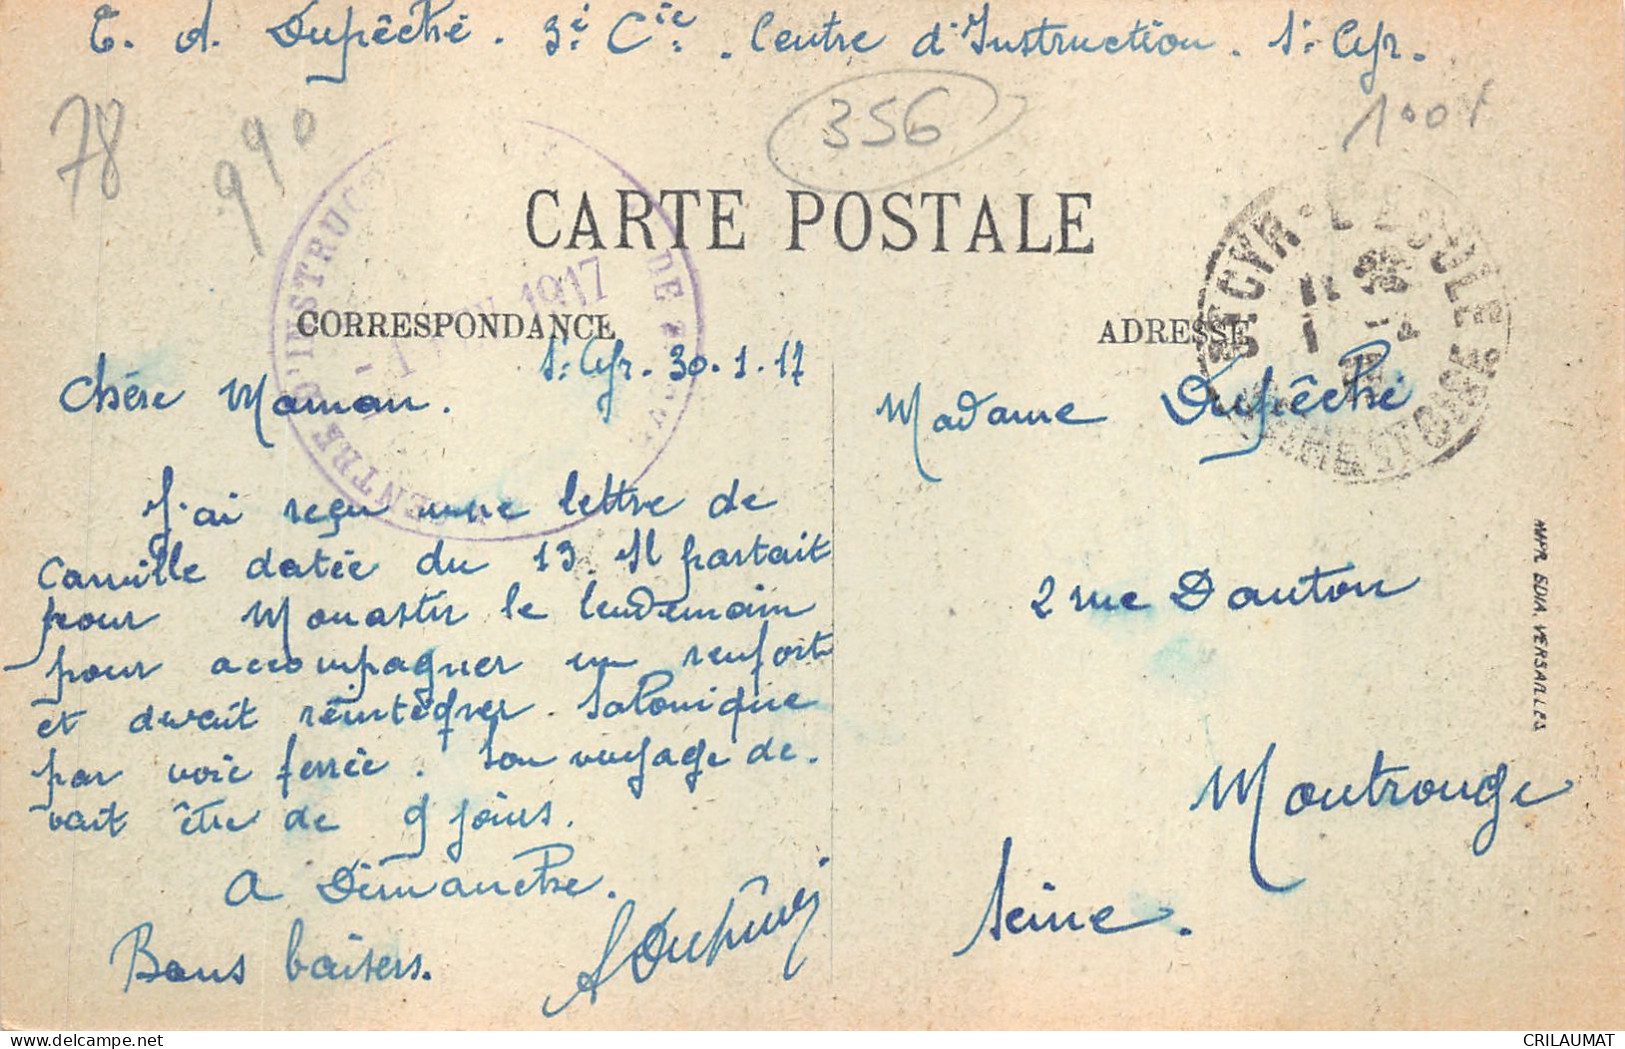 E. A. Dupêché. 3e Cie. Centre d'Instruction. St Cyr.
78
990
356
100f
CARTE POSTALE
CORRESPONDANCE
ADRESSE
CENTRE D'INSTRUC DE
1917
ST CYR-L'ECOLE
SEINE ET OISE
St Cyr. 30.1.17
Chère Maman.
J'ai reçu une lettre de
Camille datée du 13. Il partait
pour Monastir le lendemain
pour accompagner un renfort
et devait réintégrer Salonique
par voie ferrée. Son voyage de-
vait être de 9 jours.
A Dimanche.
Bons baisers.
ADupêché
Madame Dupêché
2 rue Danton
Montrouge
Seine.
IMPR. EDIA. VERSAILLES
delcampe.net
CRILAUMAT